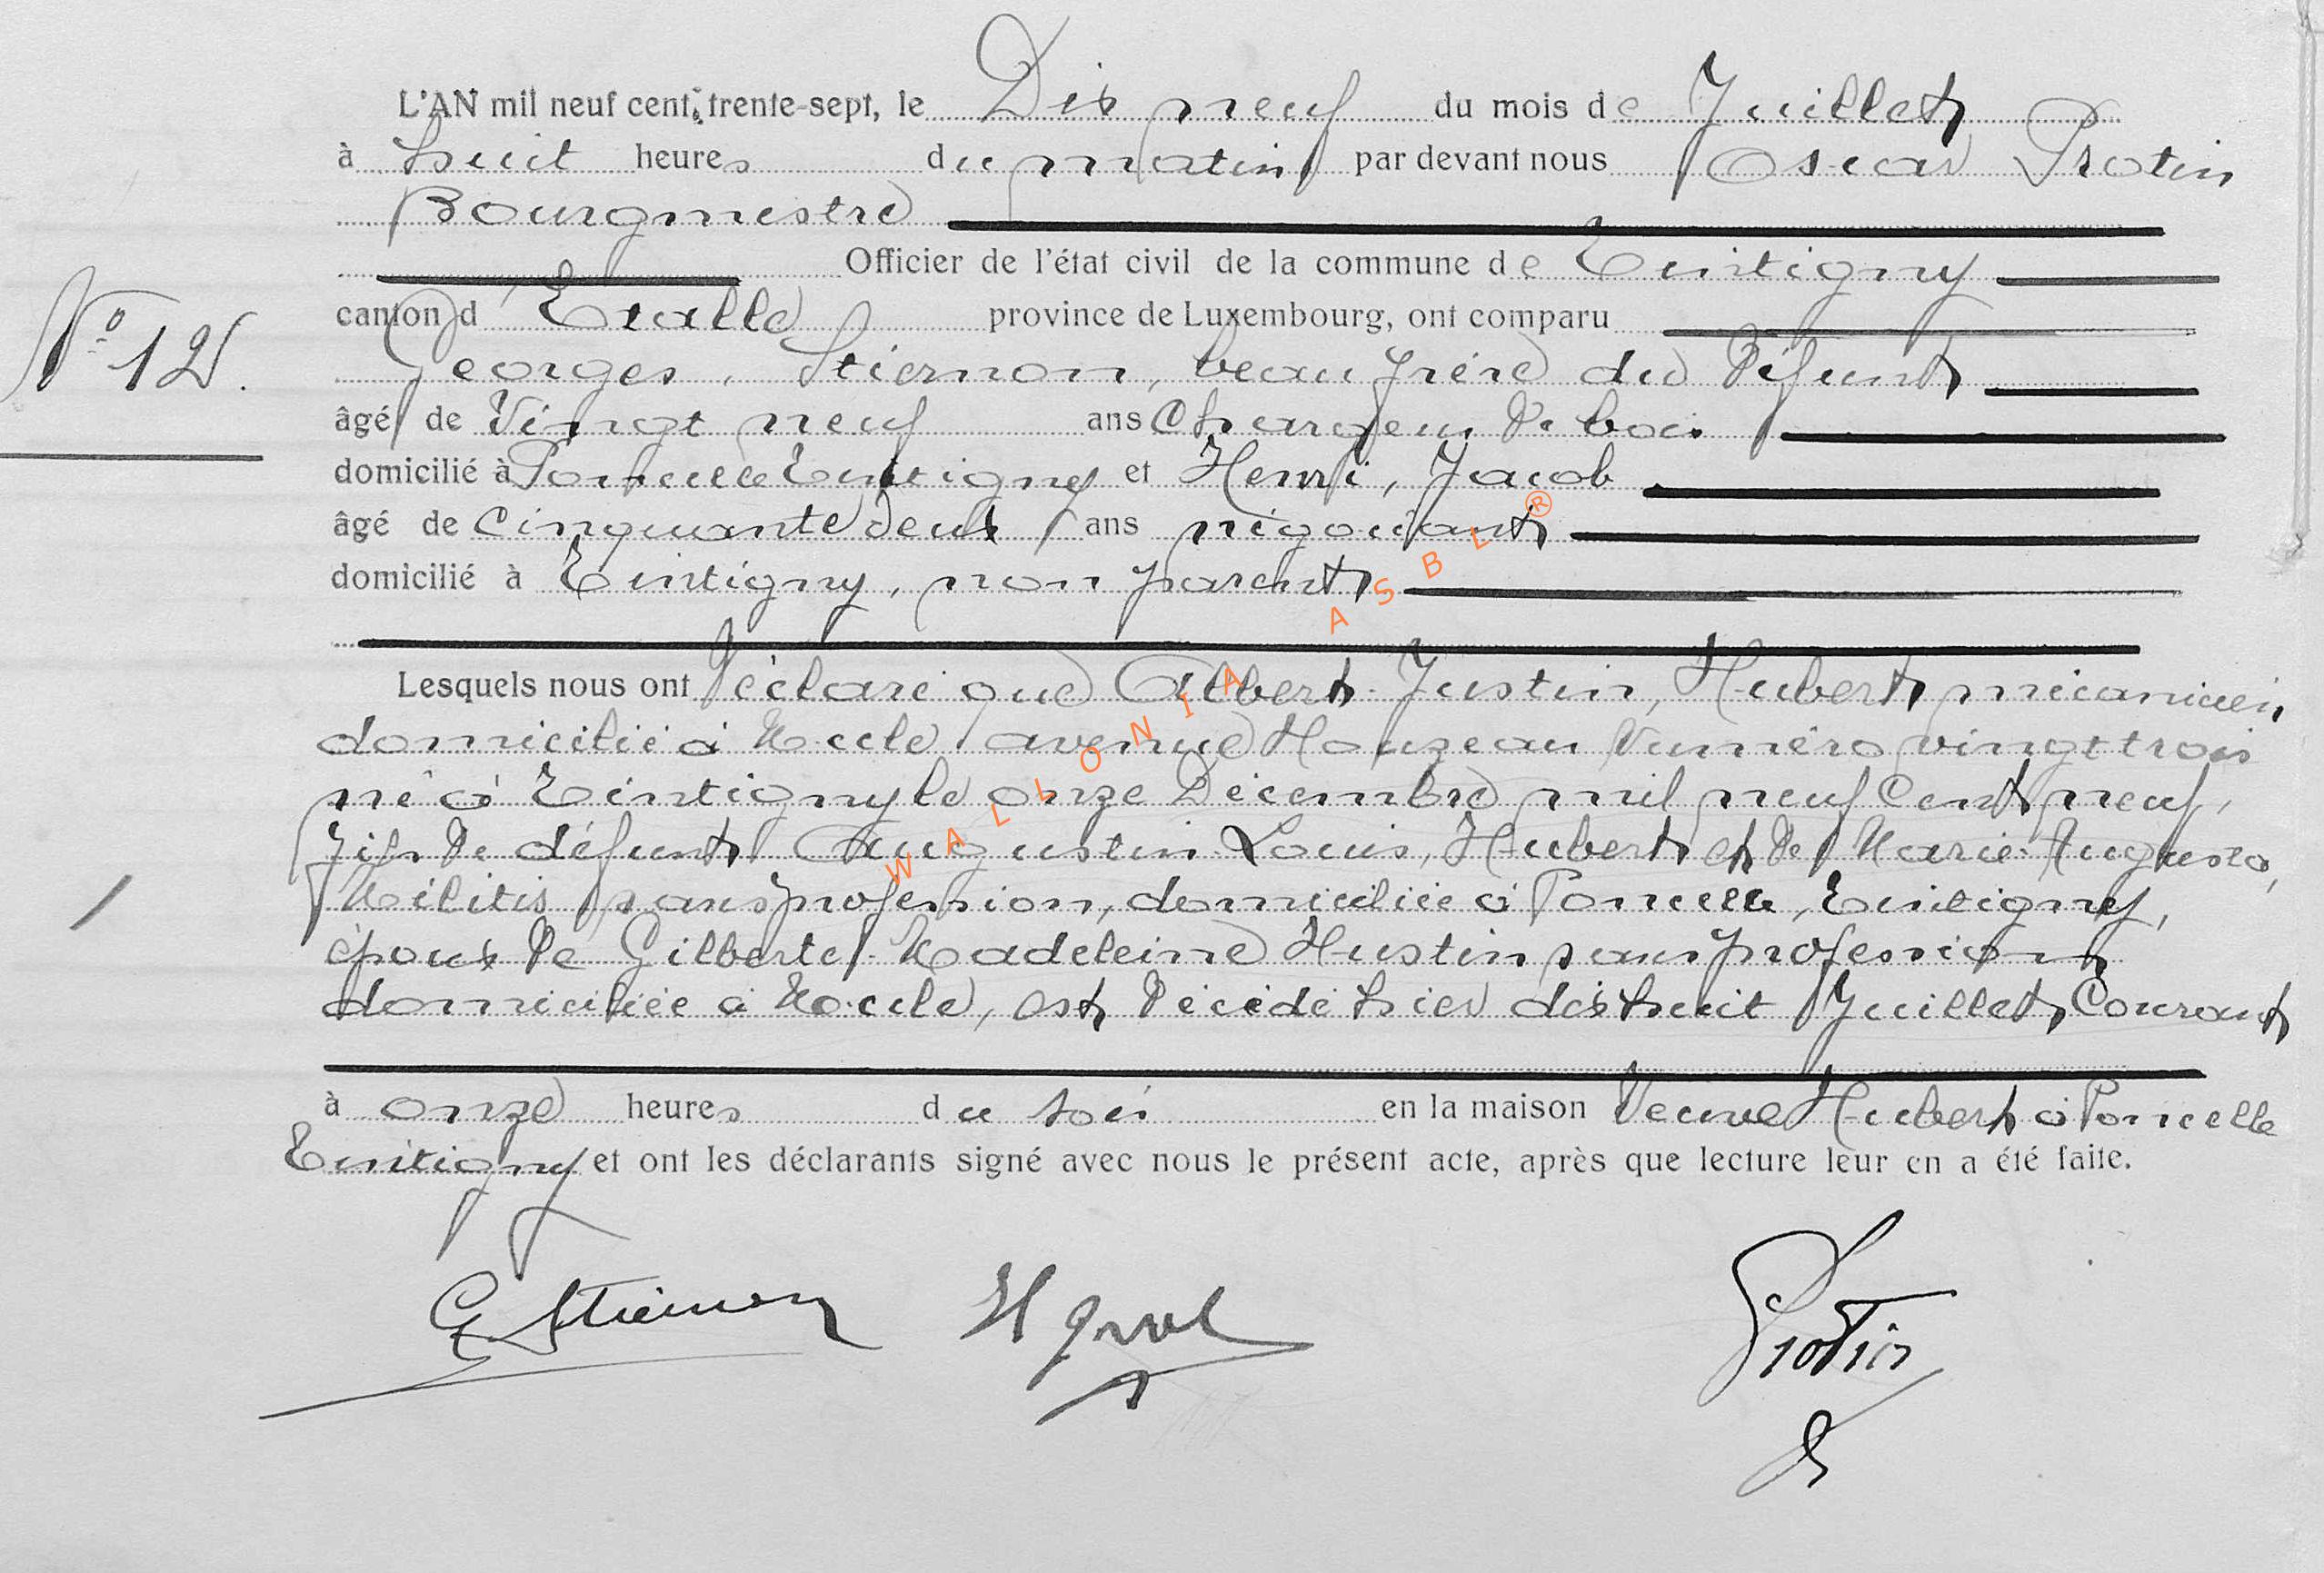 L'AN mil neuf cent trente-sept, le Dix neuf du mois de Juillet
à huit heures du matin par devant nous Oscar Protin
Bourgmestre
Officier de l'état civil de la commune de Tintigny
N° 12.
canton d'Etalle province de Luxembourg, ont comparu
Georges, Stiernon, beau frère du Défunt
âgé de Vingt neuf ans Chargeur de bois
domicilié à Poncelle Tintigny et Henri, Jacob
âgé de Cinquante deux ans négociant
domicilié à Tintigny, non parent
Lesquels nous ont déclaré que Albert-Justin, Hubert, mécanicien
domicilié à Uccle, avenue Houzeau Numéro vingt trois
né à Tintigny le onze Décembre mil neuf Cent neuf,
fils de défunt Augustin-Louis, Hubert et de Marie-Augusta,
sans profession, domiciliée à Poncelle, Tintigny,
époux de Gilberte-Madeleine Hustin sans profession
domiciliée à Uccle, est décédé hier dix huit Juillet, Courant
à onze heures du soir en la maison Veuve Hubert à Poncelle
Tintigny et ont les déclarants signé avec nous le présent acte, après que lecture leur en a été faite.
G Stiernon H Jacob Protin
WALLONIA ASBL ®